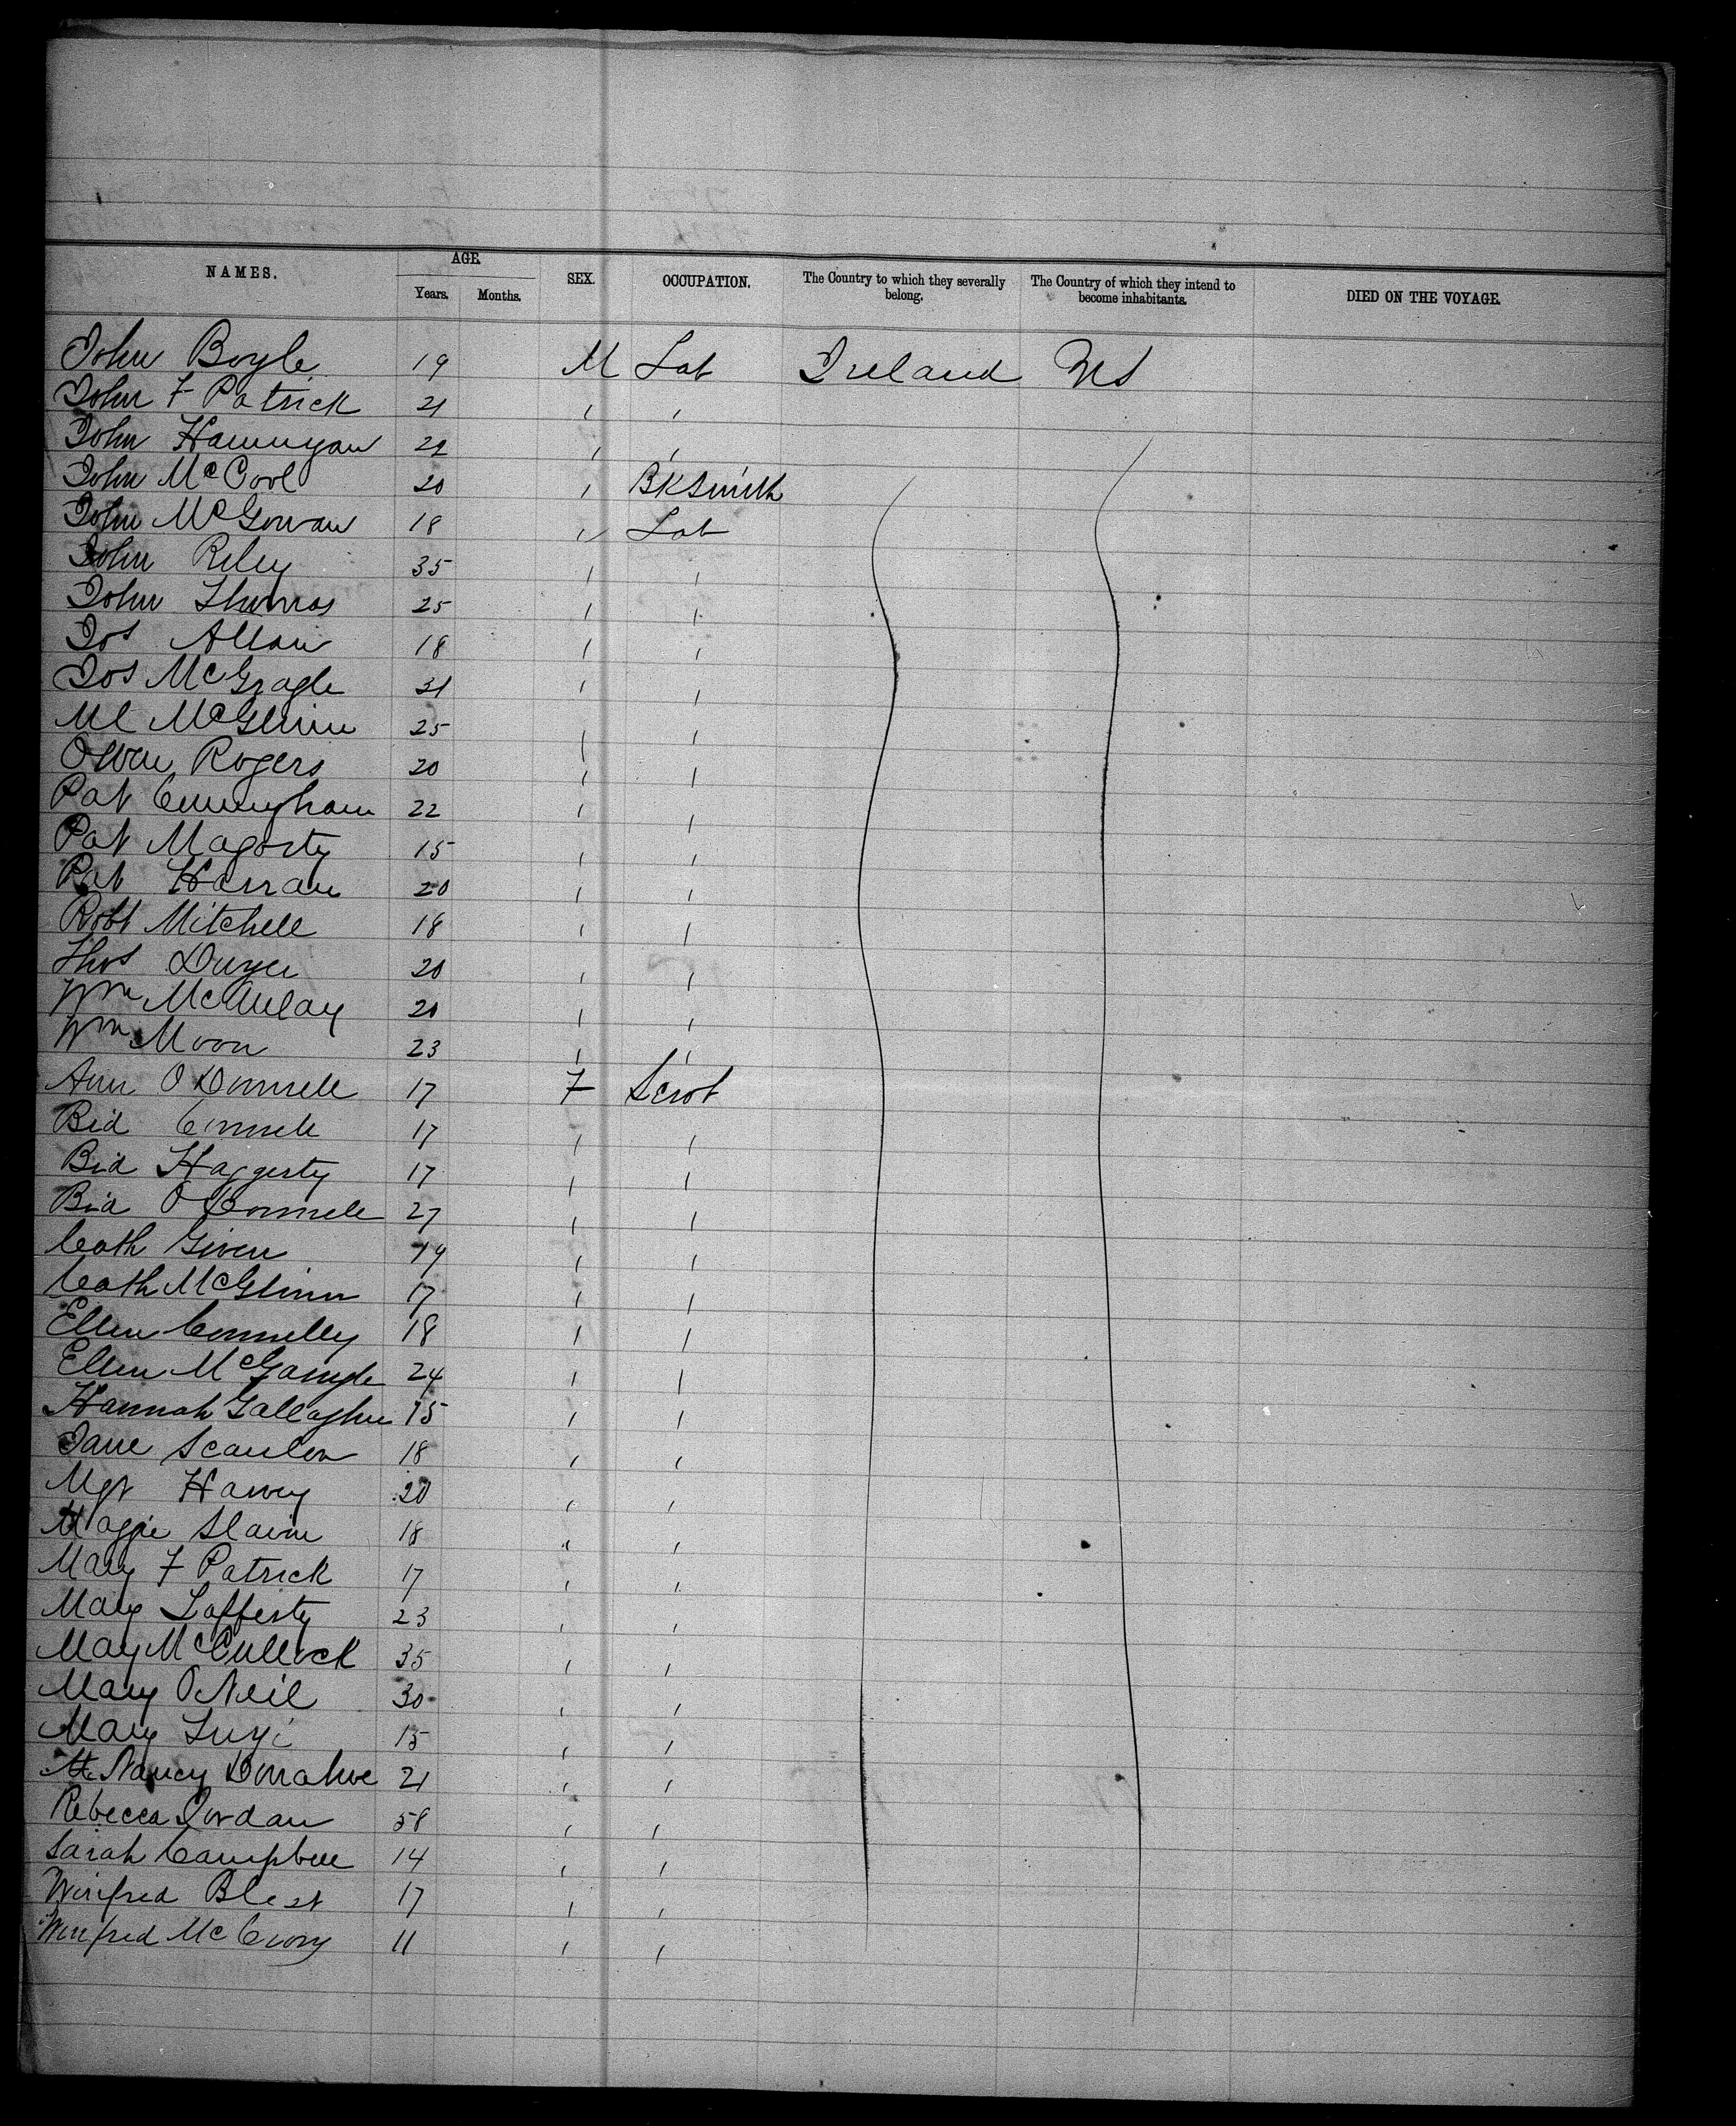 NAMES. AGE. Years. Months. SEX. OCCUPATION. The Country to which they severally belong. The Country of which they intend to become inhabitants. DIED ON THE VOYAGE.
John Boyle 19 M Lab Ireland US
John F Patrick 21 , ,
John Hannigan 22 , ,
John McCool 20 , BKSmith
John McGowan 18 , Lab
John Riley 35 , ,
John Thomas 25 , ,
Jos Allan 18 , ,
Jos McGragle 31 , ,
Ml McGlinn 25 , ,
Owen Rogers 20 , ,
Pat Cunningham 22 , ,
Pat Magorty 15 , ,
Pat Harran 20 , ,
Robt Mitchell 18 , ,
Thos Dwyer 20 , ,
Wm McAulay 20 , ,
Wm Moon 23 , ,
Ann O Donnell 17 F Servt
Bid Connell 17 , ,
Bid Haggerty 17 , ,
Bid O Connell 27 , ,
Cath Given 19 , ,
Cath McGlinn 17 , ,
Ellen Connelly 18 , ,
Ellen 24 , ,
Hannah Gallagher 15 , ,
Jane Scanlon 18 , ,
Mgt Harvey 20 , ,
Maggie Slavin 18 , ,
Mary F Patrick 17 , ,
Mary Lafferty 23 , ,
Mary McCullock 35 , ,
Mary O Neil 30 , ,
Mary 15 , ,
Nancy Donahue 21 , ,
Rebecca Jordan 58 , ,
Sarah Campbell 14 , ,
Winifred Blest 17 , ,
Winifred McCrory 11 , ,